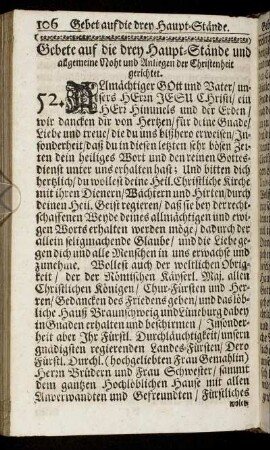 106 Gebet auf die drey Haupt-Stände.
Gebete auf die drey Haupt-Stände und
allgemeine Noht und Anliegen der Christenheit
gerichtet.
52. ALlmächtiger GOtt und Vater/ un-
sers HErrn JESU CHristi/ ein
HErr Himmels und der Erden/
wir dancken dir von Hertzen/ für deine Gnade/
Liebe und treue/ die du uns bißhero erweisen/ In-
sonderheit/ daß du in diesen letzten sehr bösen Zei-
ten dein heiliges Wort und den reinen Gottes-
dienst unter uns erhalten hast; Und bitten dich
hertzlich/ du wollest deine Heil. Christliche Kirche
mit ihren Dienern/ Wächtern und Hirten durch
deinen Heil. Geist regieren/ daß sie bey der recht-
schaffenen Weyde deines allmächtigen und ewi-
gen Worts erhalten werden möge/ dadurch der
allein seligmachende Glaube/ und die Liebe ge-
gen dich und alle Menschen in uns erwachse und
zunehme. Wollest auch der weltlichen Obrig-
keit/ der der Römischen Käyserl. Maj. allen
Christlichen Königen/ Chur-Fürsten und Her-
ren/ Gedancken des Friedens geben/ und das löb-
liche Hauß Braunschweig und Lüneburg dabey
in Gnaden erhalten und beschirmen/ Insonder-
heit aber Ihr Fürstl. Durchläuchtigkeit/ unsern
gnädigsten regierenden Landes-Fürsten/ Dero
Fürstl. Durchl. (hochgeliebten Frau Gemahlin)
Herrn Brüdern und Frau Schwester/ sammt
dem gantzen Hochlöblichen Hause mit allen
Anverwandten und Gefreundten/ Fürstliches